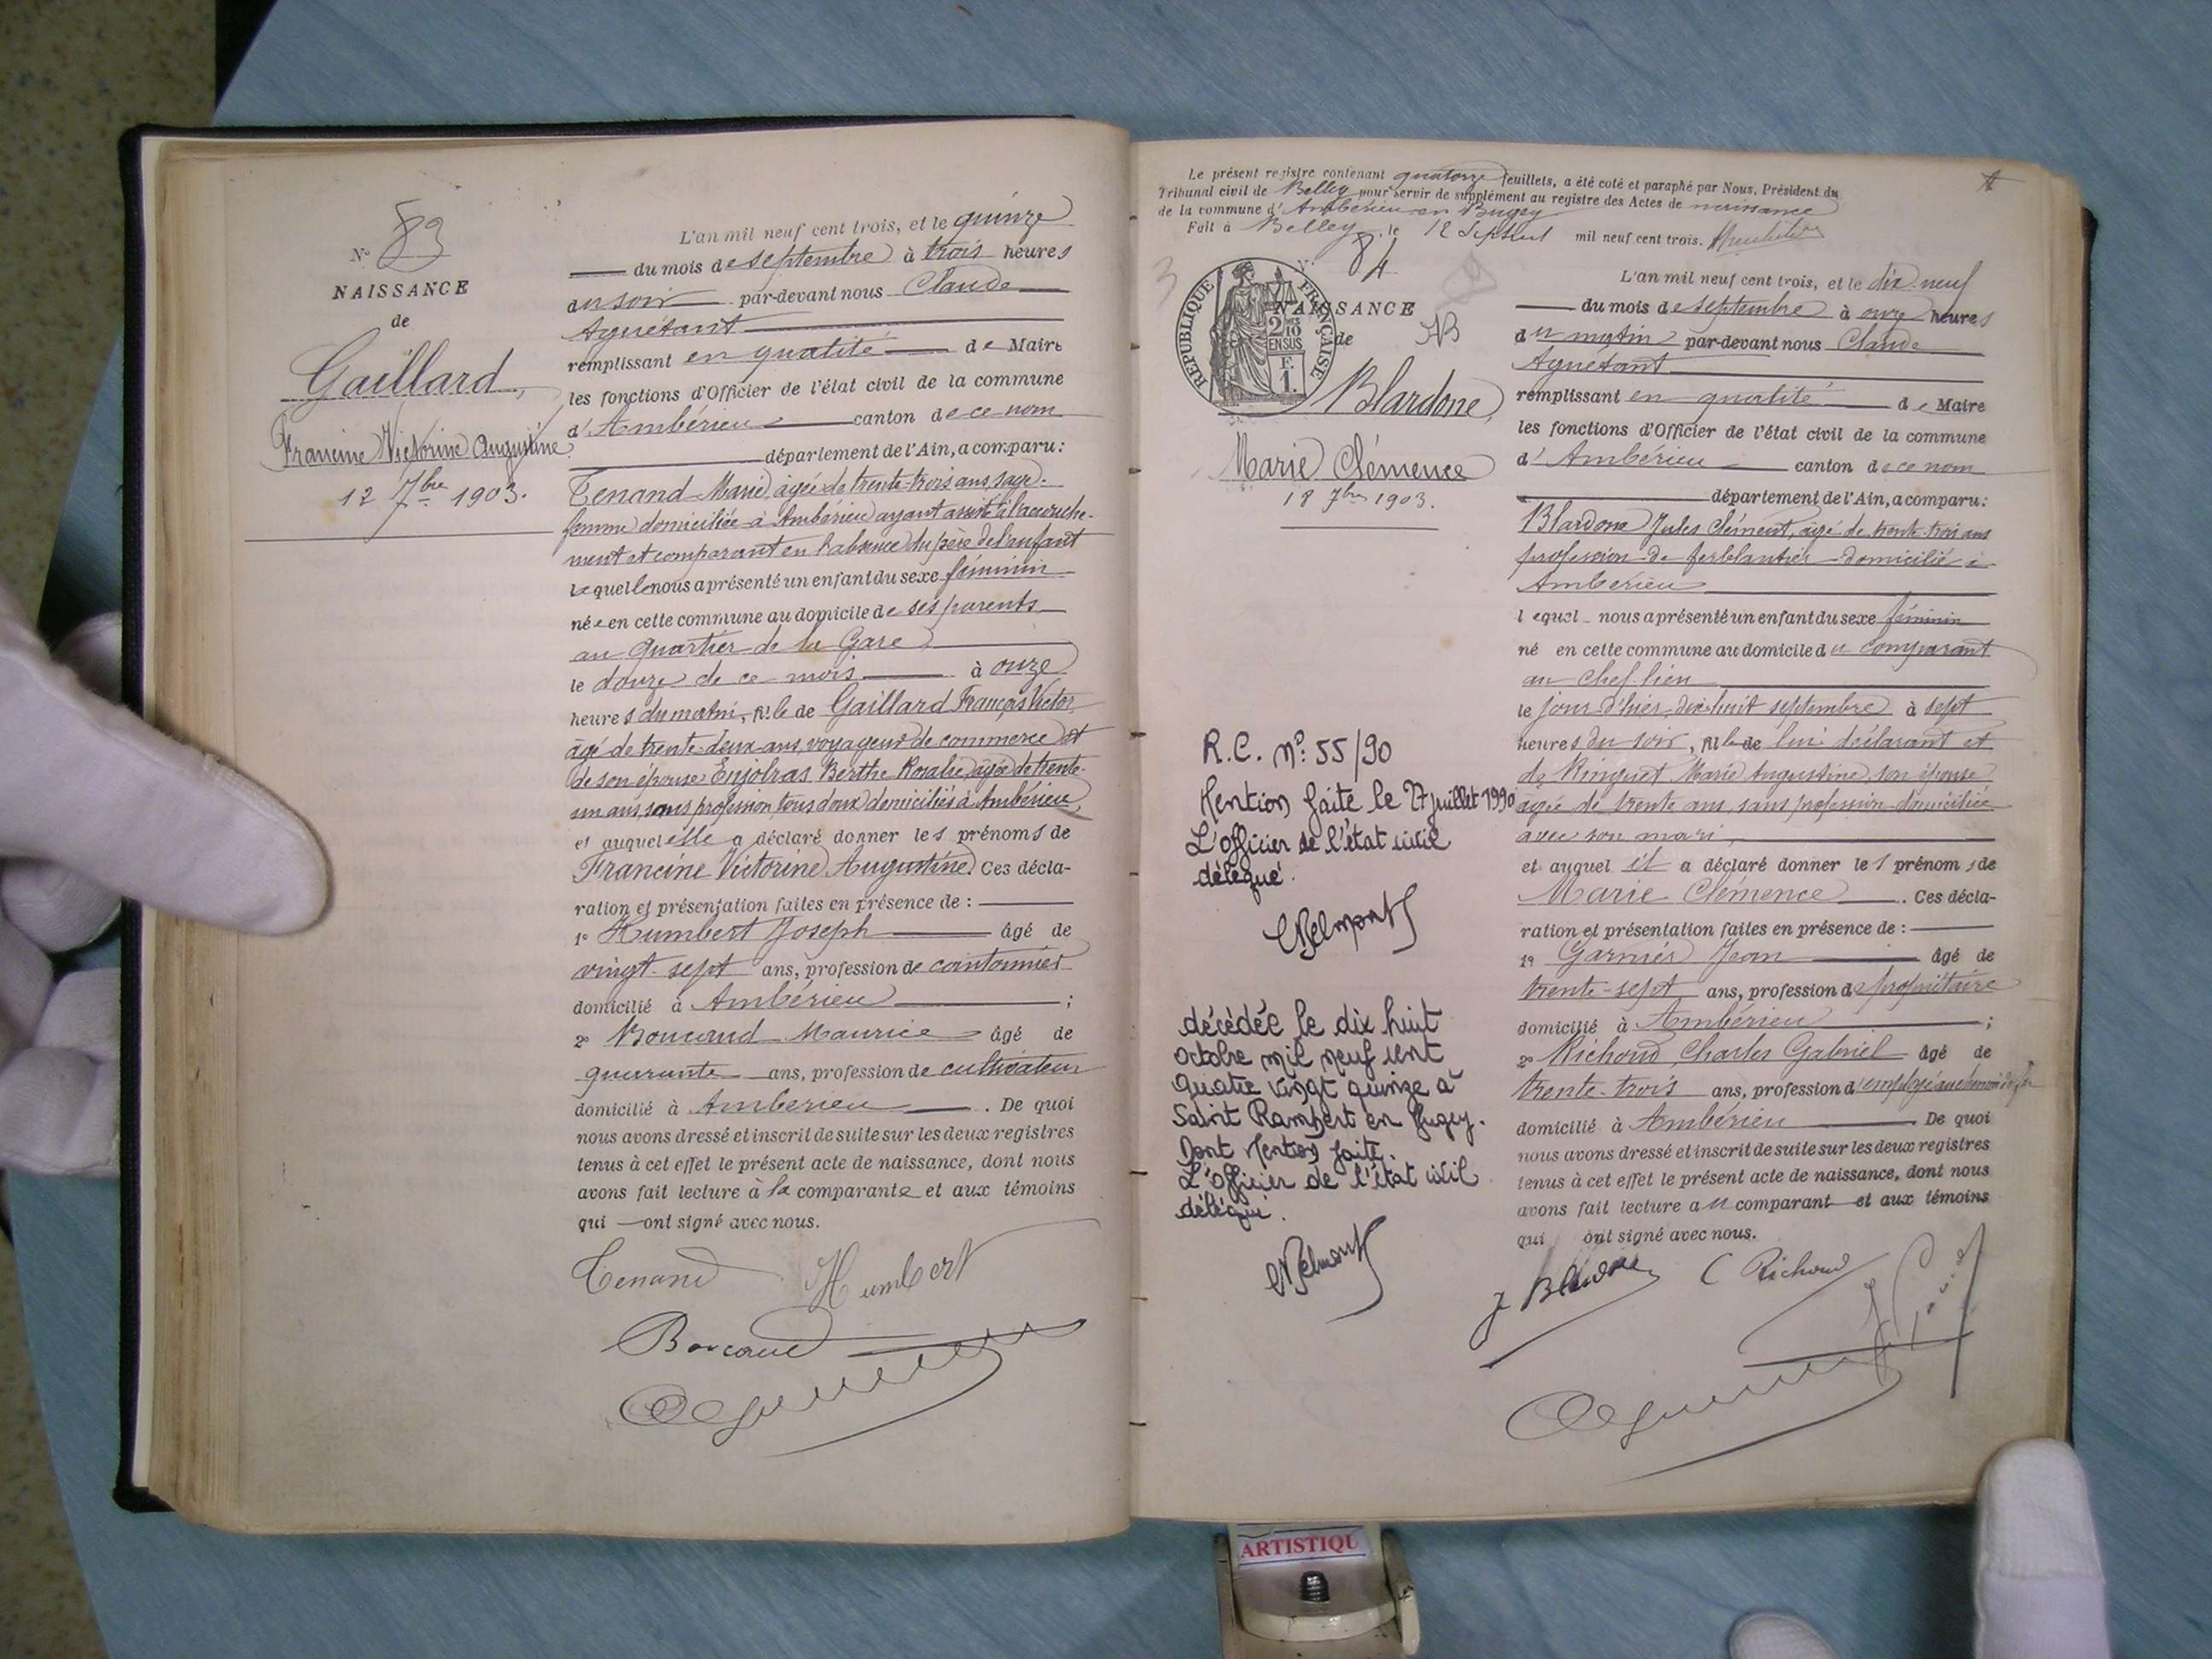 Nº 83
NAISSANCE
de
Gaillard,
Francine Victorine Augustine
12 7bre 1903.
L'an mil neuf cent trois, et le quinze
du mois de septembre à trois heures
du soir par-devant nous Claude
Aguétant
remplissant en qualité de Maire
les fonctions d'Officier de l'état civil de la commune
d'Ambérieu canton de ce nom
département de l'Ain, a comparu:
Tenand Marie, agée de trente-trois ans, sage-
femme domiciliée à Ambérieu ayant assisté à l'accouche-
ment et comparant en l'absence du père de l'enfant
laquelle nous a présenté un enfant du sexe féminin
née en cette commune au domicile de ses parents
au quartier de la Gare
le douze de ce mois à onze
heures du matin, fille de Gaillard François Victor
âgé de trente-deux ans, voyageur de commerce et
de son épouse Enjolras Berthe Rosalie, agée de trente-
un ans, sans profession, tous deux domiciliés à Ambérieu,
et auquel elle a déclaré donner les prénoms de
Francine Victorine Augustine. Ces décla-
ration et présentation faites en présence de :
1º Humbert Joseph âgé de
vingt-sept ans, profession de cantonnier
domicilié à Ambérieu ;
2º Boucaud Maurice âgé de
quarante ans, profession de cultivateur
domicilié à Ambérieu . De quoi
nous avons dressé et inscrit de suite sur les deux registres
tenus à cet effet le présent acte de naissance, dont nous
avons fait lecture à la comparante et aux témoins
qui ont signé avec nous.
Tenand Humbert
Boucaud
Le présent registre contenant quatorze feuillets, a été coté et paraphé par Nous, Président du
Tribunal civil de Belley pour servir de supplément au registre des Actes de naissance
de la commune d'Ambérieu en Bugey
Fait à Belley, le 12 Septembre mil neuf cent trois.
Nº 84
RÉPUBLIQUE FRANÇAISE
2 10MES
EN SUS
F.
1.
NAISSANCE
de
Blardone,
Marie Clémence
18 7bre 1903.
R.C. Nº: 55/90
Mention faite le 27 juillet 1990
L'officier de l'état civil
délégué.
décédée le dix huit
octobre mil neuf cent
quatre vingt quinze à
Saint Rambert en Bugey.
Dont mention faite.
L'officier de l'état civil
délégué.
L'an mil neuf cent trois, et le dix-neuf
du mois de septembre à onze heures
du matin par-devant nous Claude
Aguétant
remplissant en qualité de Maire
les fonctions d'Officier de l'état civil de la commune
d'Ambérieu canton de ce nom
département de l'Ain, a comparu:
Blardone Jules Clément, agé de trente-trois ans
profession de ferblantier domicilié à
Ambérieu
lequel nous a présenté un enfant du sexe féminin
né en cette commune au domicile du comparant
au chef-lieu
le jour d'hier, dix-huit septembre à sept
heures du soir, fille de lui déclarant et
de Ringuet Marie Augustine, son épouse
agée de trente ans, sans profession domiciliée
avec son mari
et auquel il a déclaré donner les prénoms de
Marie Clémence . Ces décla-
ration et présentation faites en présence de :
1º Garnier Jean âgé de
trente-sept ans, profession de propriétaire
domicilié à Ambérieu ;
2º Richoud Charles Gabriel âgé de
trente-trois ans, profession d'employé au chemin de fer
domicilié à Ambérieu De quoi
nous avons dressé et inscrit de suite sur les deux registres
tenus à cet effet le présent acte de naissance, dont nous
avons fait lecture au comparant et aux témoins
qui ont signé avec nous.
J Blardone C Richoud
ARTISTIQU